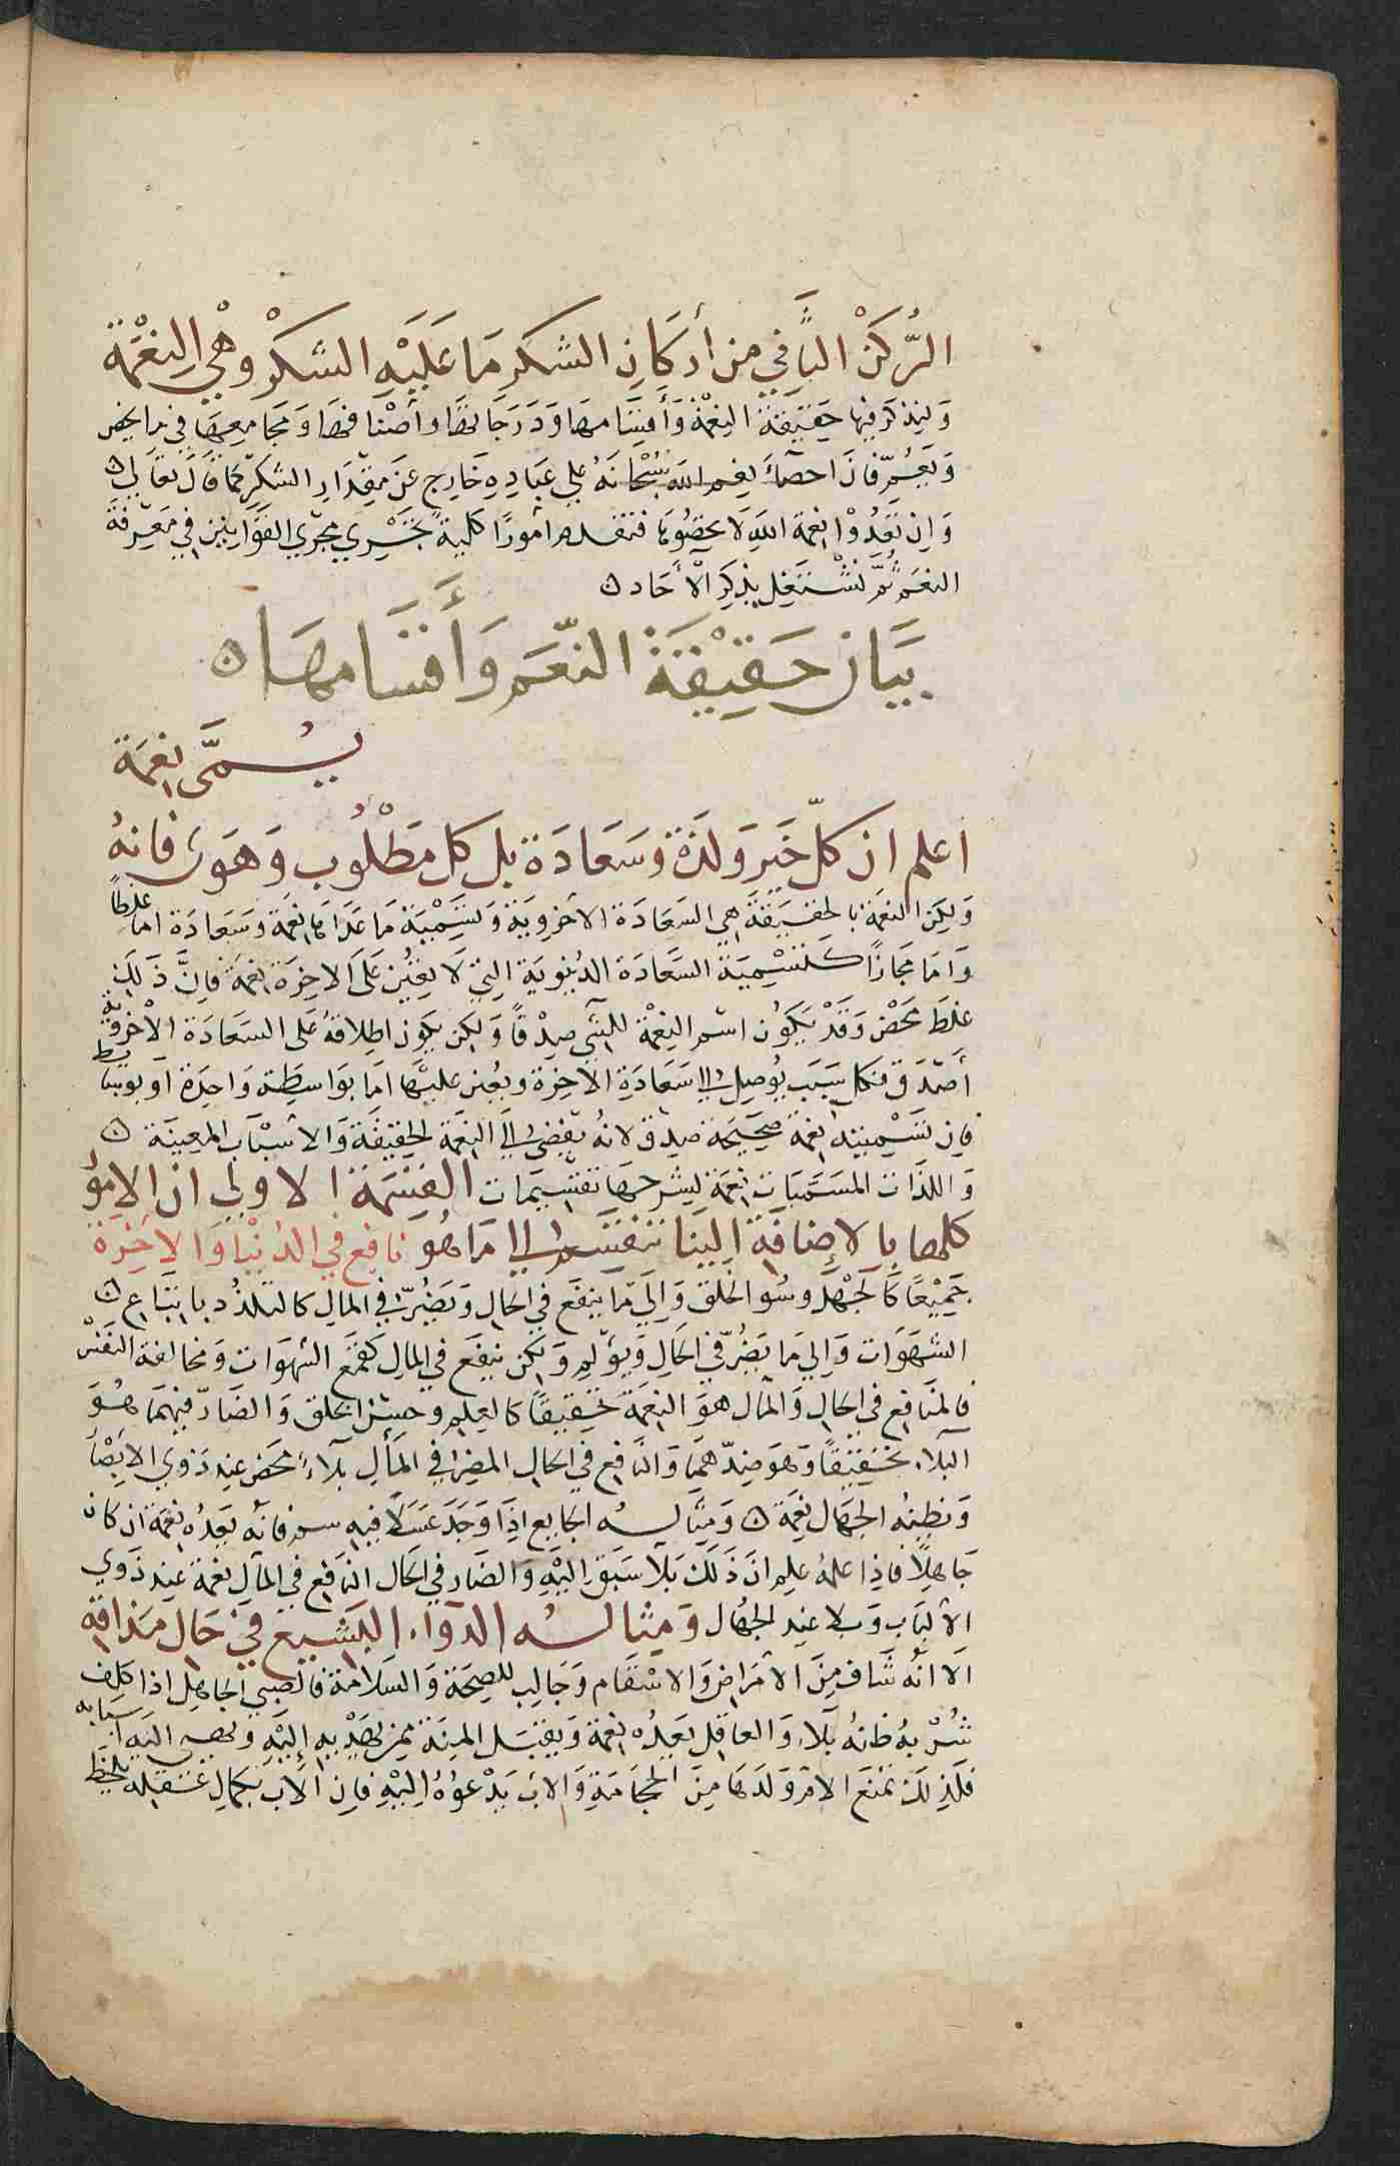 الرُّكن الثاني من أركان الشكر مَا عَلَيْهِ الشكر وهْي النِعْمَة
وَلنِذكر فيها حَقيقَة النِعْمَة وَأَقسَامهَا وَدَرَجَاتهَا وأصْنافهَا وَمَجَامِعهَا فِي مَا يخص
وَيَعُمّ فان احصآء نِعَم الله سُبْحَانَهُ علي عِبَادِهِ خَارِج عَن مِقدَارِ الشكر كمَا قَالَ تعَالى ن
وَاِن تَعُدُوْا نِعمَة اللهِ لَا تحصُوهَا فنقدم امُورًا كليةً تجْرِي مجْرَي القَوَانِين فِي مَعْرفةَ
النعَم ثُمّ نشْتَغِل بِذِكرِ الْأَحَاد ن
بَيَان حَقِيْقَة النّعَم وَأَقسَامهَا ن
يُسمَّى نعمَة
اعلم ان كلّ خَير وَلَذة وسَعَادَة بل كل مَطْلُوب وَهوَى فانهُ
وَلكِن النعمَة بالحقيقَة هِي السَعَادَة الأخروِيَة وَتَسْمِيَة مَا عَدَاهَا نعمَة وسَعَادَة اما غلطاً
وَامَا مَجَازًا كتسْمِيَة السَعَادَة الدُنيويَة التِي لَا تعِين عَلَى الاخِرَة نِعمَة فاِنَّ ذَلِكَ
غلط محْض وَقَدْ يَكُون اسْم النِعْمَة للشي صِدْقًا وَلكِن يَكون اطلاقهُ عَلى السَعَادَة الأخْروية
أصْدَق فكل سَبَب يُوصِل الى سَعَادَةِ الآخِرَة ويُعين عليْهَا امَا بوَاسِطَة وَاحِدَة اَو بوسَايط
فاِن تَسْمِيَته نِعمَة صَحِيحَة صدق لانهُ يفضي الَي النعْمَة الحقيقَة وَالاسْبَاب المعِينَة ن
وَاللذات المسَمَيَات نِعمَة لِيشْرحهَا تقسِيمَات القِسْمَة الاولي ان الامُور
كلهَا بِالاِضافَة اِليْنا تنقسم الى مَا هُو نَافِع فِي الدُنيْا وَالاخِرَة
جَمِيْعًا كَالجَهْل وسُو الخلق وَاِلَى مَا ينفَع فِي الحَالِ وَيَضُرّ في المالِ كالتلذُد باتبَاع ن
الشهَوَات وَاِلي مَا يَضُرّ فِي الحَالِ وَيُؤلِم وَلكن ينفَع فِي المالِ كقَمع الشهوَات وَمخالفة النَفسْ
فالنافِع فِي الحَالِ وَالمآل هوَ النِعمَة تحقِيقًا كالعِلم وحسْن الخلق وَالضَار فيهمَا هُوَ
البَلآء تحقِيقًا وَهوَ ضِدّهمَا وَالنافِع فِي الحَالِ المضِر فِي المآلِ بَلآء محَض عِند ذَوِي الابصَا
وَنظنهُ الجهَال نِعمَة ن وَمثَالهُ الجَايع اِذَا وَجَدَ عَسَلًا فيهِ سم فانهُ يَعدُه نِعمَة ان كان
جَاهِلًا فاِذا علمهُ علِم انَ ذَلكَ بَلآء سيق اِليْهِ وَالضَار فِي الحَال النافِع فِي المآل نِعمَة عِند ذَوِي
الالبَاب وَبَلا عِند الجهَال وَمِثَالهُ الدوآء البَشيع فِيْ حَال مَذاقهِ
اَلا انهُ شَاف مِنَ الامْرَاض وَالاسْقَام وَجَالِب للصِحَة وَالسَلامَة فالصبي الجَاهِل اذا كلف
شُرْبهُ ظنهُ بَلآء وَالعاقِل يَعدُه نِعمَة وَيتقلد المِنَة مِمَن يَهْدِيهِ اِليْهِ وَيهيي اليَهِ اسبَابه
فلذلِكَ تمنَع الام وَلدَهَا مِنَ الحجَامَةِ وَالاب يَدْعُوهُ اِليْهِ فاِن الاب بكمَالِ عَقله يلحظ